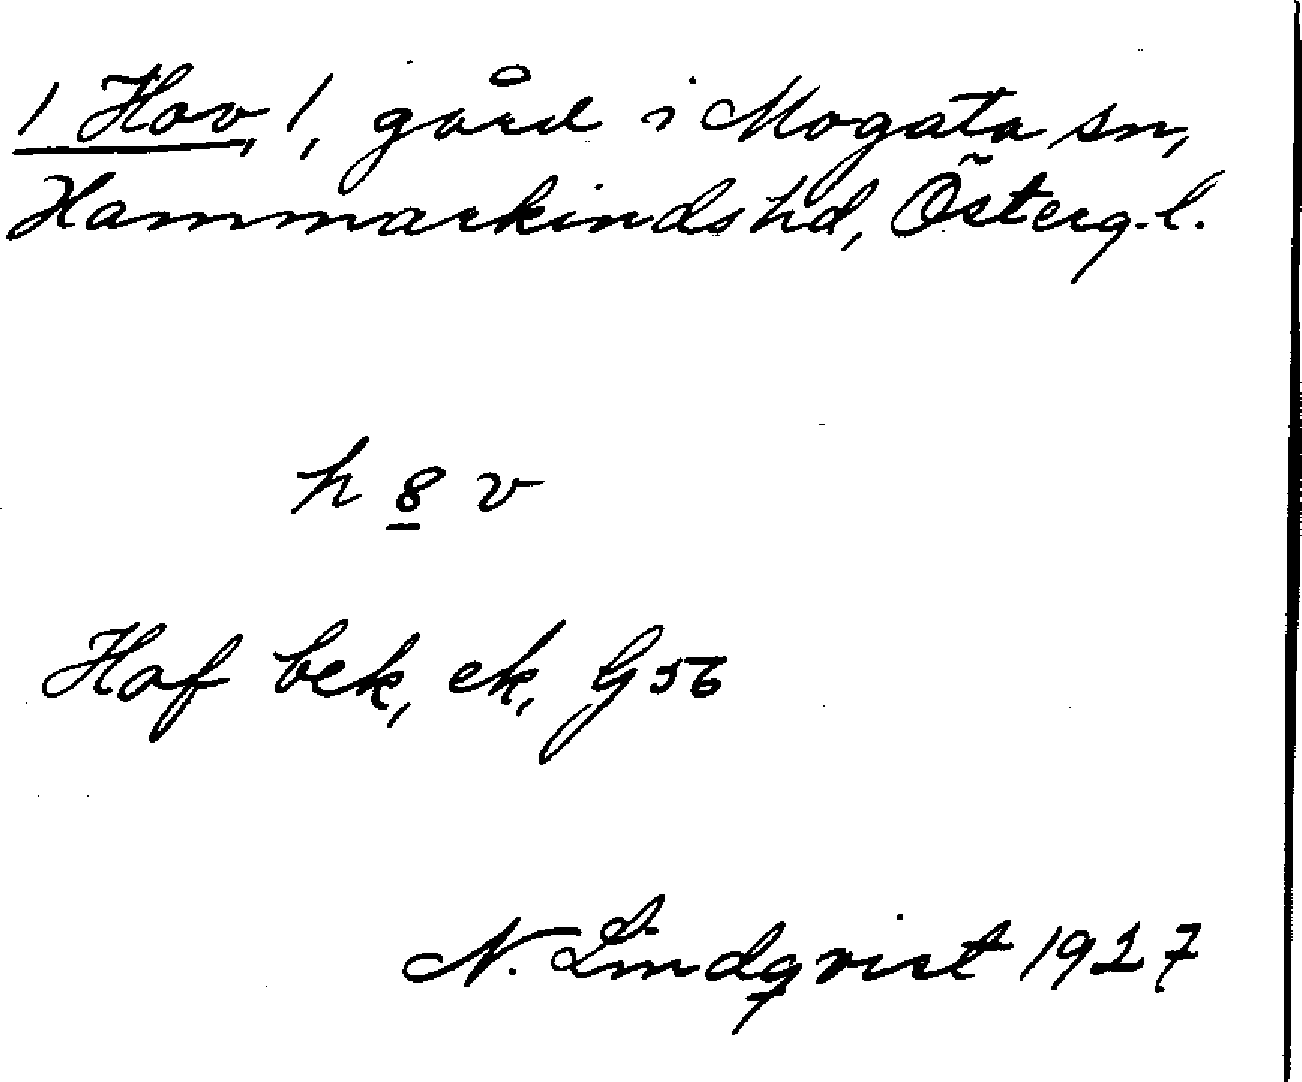 / Hov, /, gård i Mogata sn,
Hammarkinds hd, Österg. l.
h 8 v
Hof bek, ek, G 56
N. Lindqvist 1927